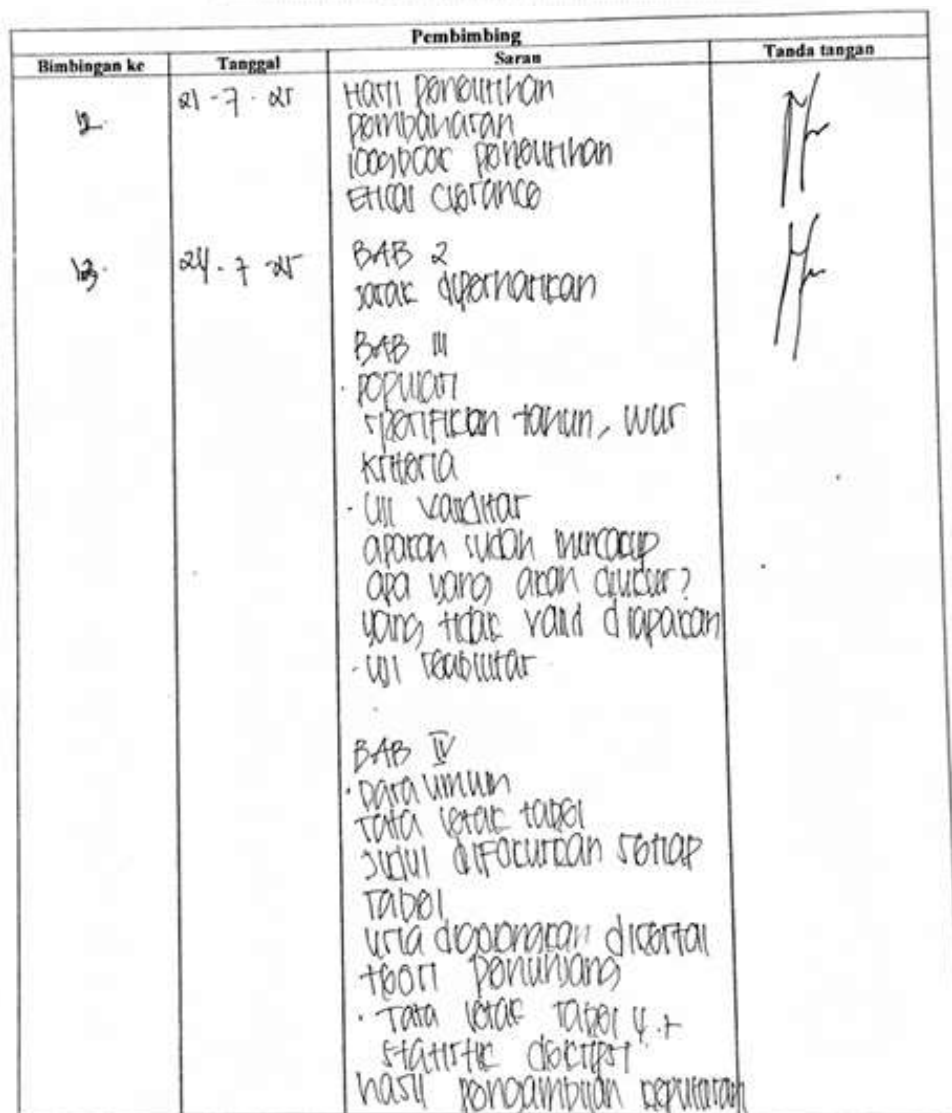 Pembimbing
Bimbingan ke Tanggal Saran Tanda tangan
12. 21-7-25 Hasil penelitihan
pembaharan
loogbook penelitihan
Etical clerance
13. 24-7-25 BAB 2
jarak diperhatikan
BAB III
· populasi
spesifikan tahun,
kriteria
· Uji validitas
apakah sudah mencakup
apa yang akan diukur?
yang tidak valid diapakan
· uji reabilitas
BAB IV
· Data umum
Tata letak tabel
Judul difokuskan setiap
tabel
usia digolongkan disertai
teori penunjang
· Tata letak tabel 4.
statistik deskripsi
hasil pengambilan keputusan